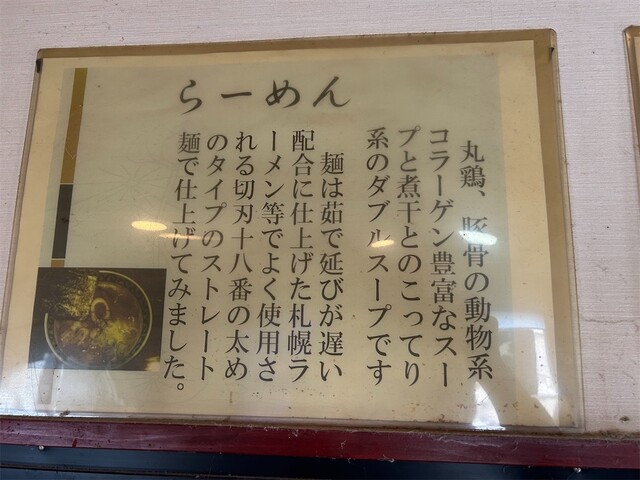 らーめん
丸鶏、豚骨の動物系
コラーゲン豊富なスー
プと煮干とのこってり
系のダブルスープです
麺は茹で延びが遅い
配合に仕上げた札幌ラ
ーメン等でよく使用さ
れる切刃十八番の太め
のタイプのストレート
麺で仕上げてみました。